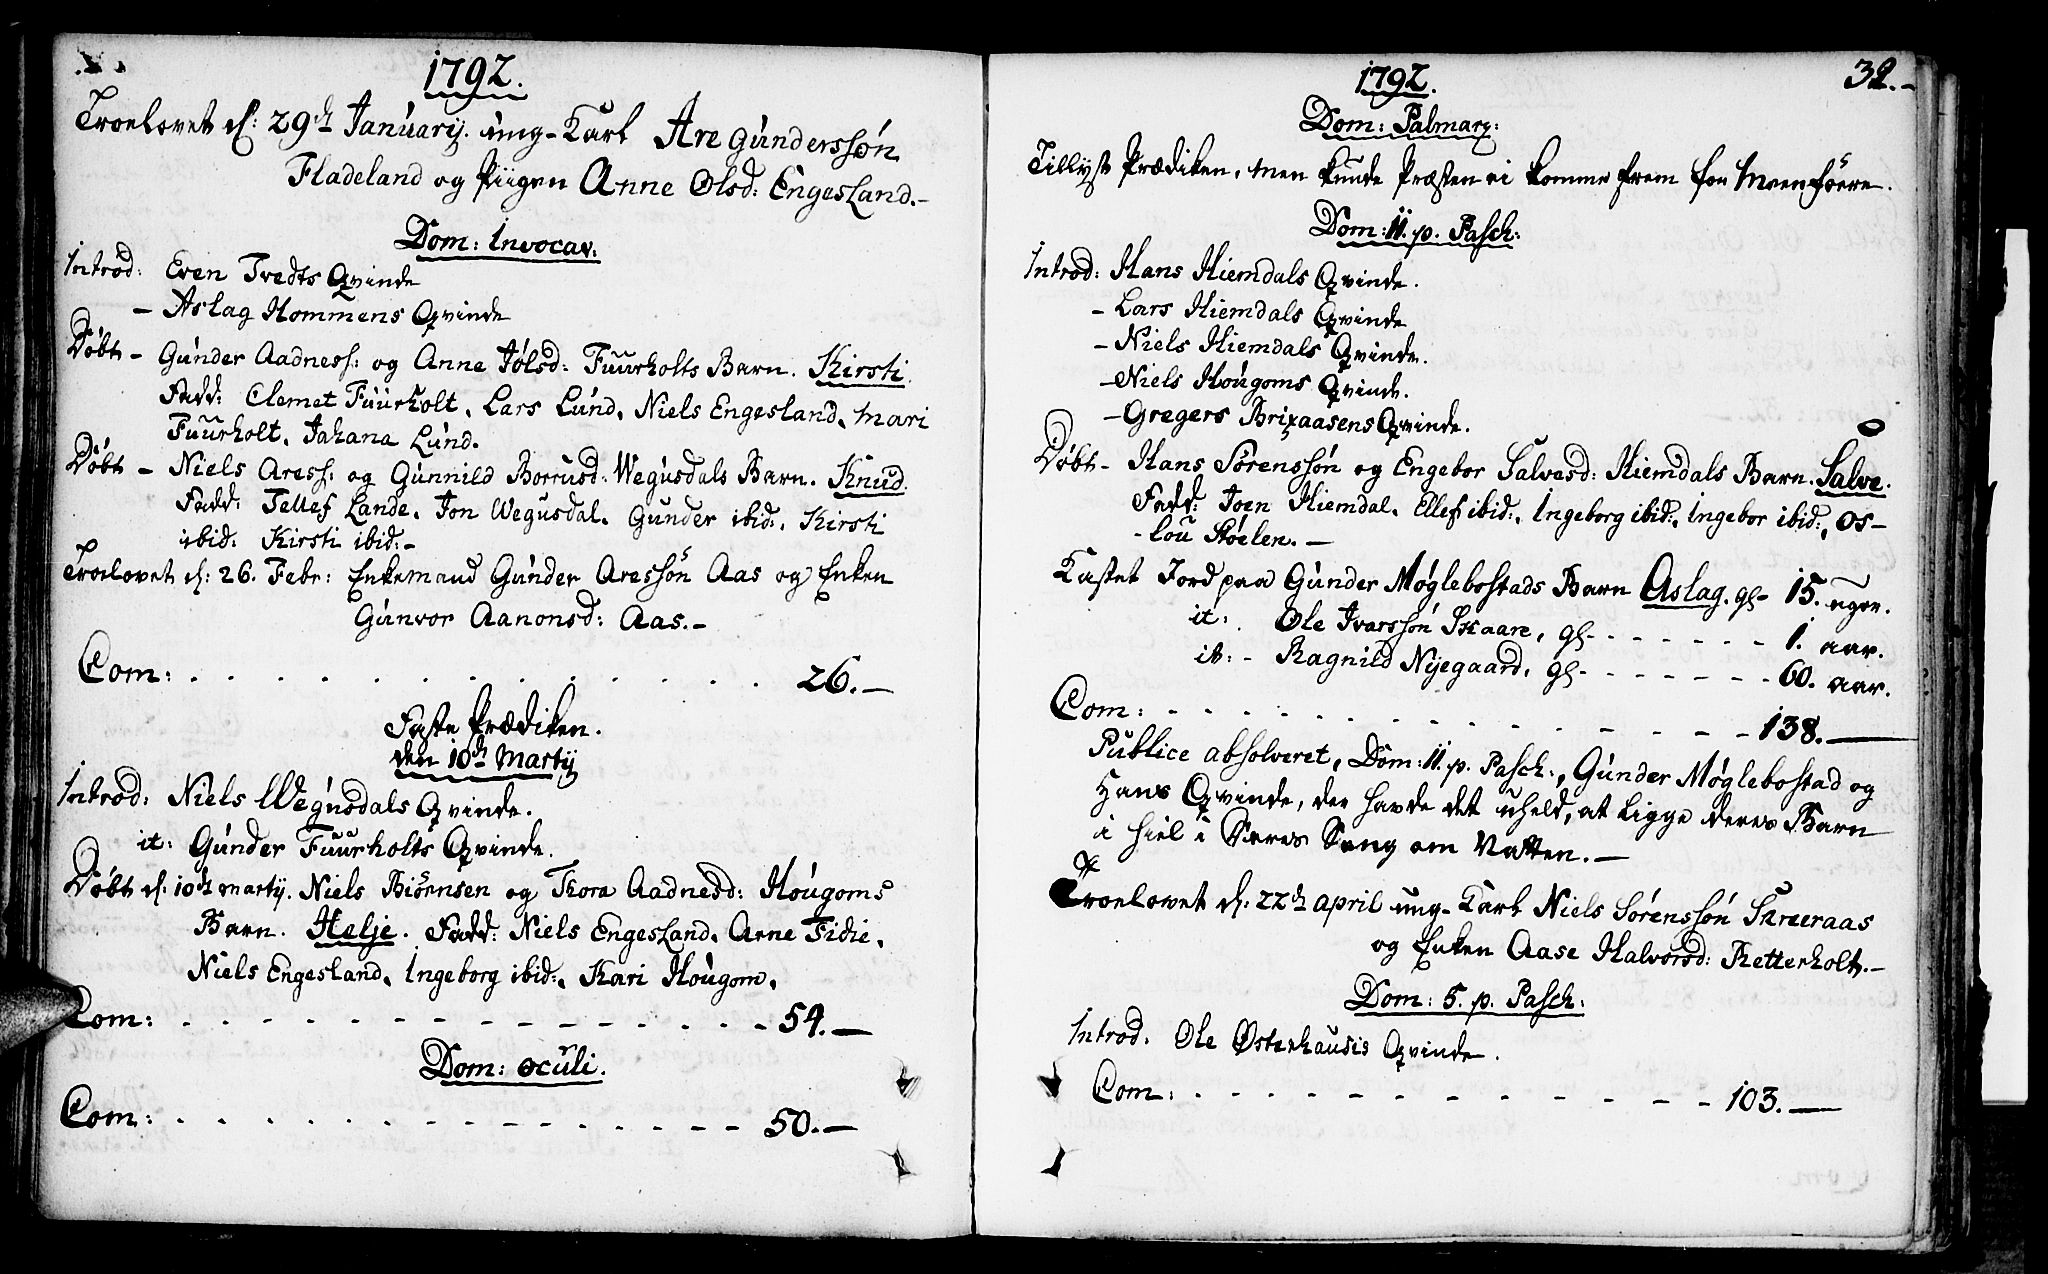 1792.
Troelovet d: 29de Januarij. ung-Karl Are Gunderssøn
Fladeland og Piigen Anne Olsd: Engesland.-
Dom: Invocav.
Introd: Even Tvedts Qvinde
- Aslag Hommens Qvinde
Døbt - Gunder Aadness: og Anne Jølsd: Fuurholts Barn. Kirsti.
Fadd: Clemet Fuurholt, Lars Lund, Niels Engesland, Mari
Fuurholt, Johana Lund.
Døbt - Niels Aress: og Gunnild Borrusd: Wegusdals Barn. Knud.
Fadd: Tellef Lande, Jon Wegusdal, Gunder ibid:, Kirsti
ibid: Kirsti ibid:-
Troelovet d: 26. Febr: Enkemand Gunder Aressøn Aas og Enken
Gunvor Aanonsd: Aas.-
Com: 26.-
Faste Prædiken.
den 10de Martij
Introd: Niels Wegusdals Qvinde.
it: Gunder Fuurholts Qvinde.
Døbt d: 10de Martij. Niels Biørnsen og Thora Aadnesd: Hougoms
Barn. Helje. Fadd: Niels Engesland, Arne Fidie,
Niels Engesland, Ingeborg ibid:, Kari Hougom.
Com: 54.-
Dom: Oculi.
Com: 50.-
1792.
32.-
Dom: Palmar:
Tillyst Prædiken, men kunde Præsten ei komme frem for Meenføere.
Dom: II. p. Pasch:
Introd: Hans Hiemdals Qvinde.
- Lars Hiemdals Qvinde
- Niels Hiemdals Qvinde.
- Niels Hougoms Qvinde.
- Gregers Brixaasens Qvinde.
Døbt - Hans Sørenssøn og Engebor Salvesd: Hiemdals Barn. Salve.
Fadd: Joen Hiemdal, Ellef ibid:, Ingeborg ibid:, Ingebor ibid:, Os-
-lou Støelen.-
Kastet Jord paa Gunder Møglebostads Barn Aslag. gl- 15. uger.
it: Ole Ivarssøn Skaare, gl- 1. aar.
it: - Ragnild Nyegaard, gl- 60. aar.
Com: 138.-
Publice absolveret, Dom: II. p. Pasch:, Gunder Møglebostad og
Hans Qvinde, der havde det uheld, at ligge deres Barn
i hiel i Deres Seng om Natten.-
Troelovet d: 22de April ung-Karl Niels Sørenssøn Skreeraas
og Enken Aase Halvorsd: Retterholt.-
Dom: 5. p. Pasch:
Introd. Ole Østerhausis Qvinde.
Com: 103.-